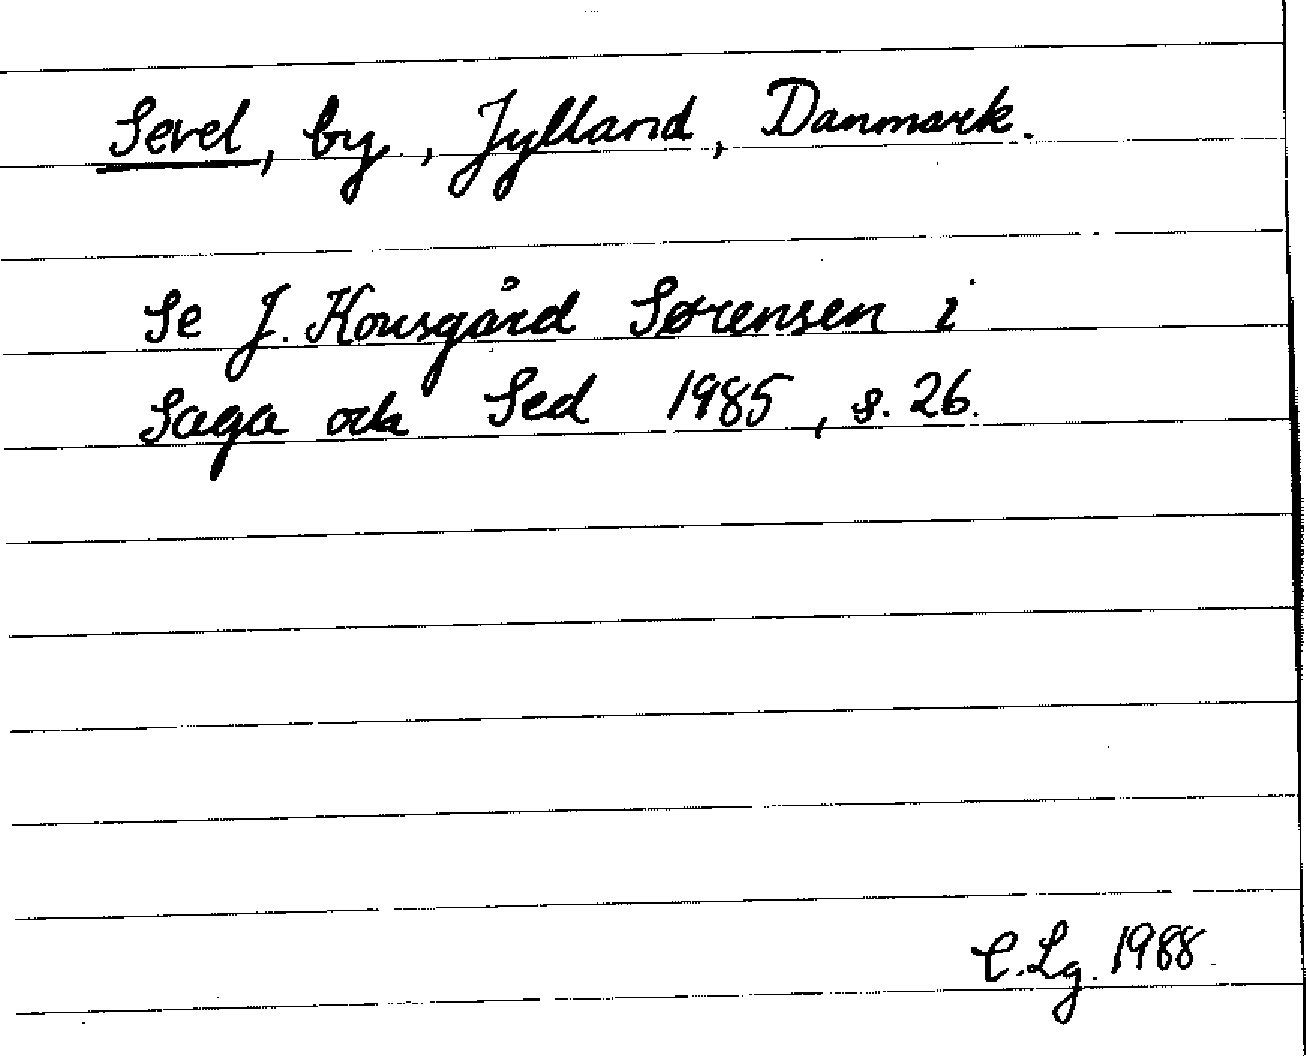 Sevel, by, Jylland, Danmark.
Se J. Kousgård Sørensen i
Saga och Sed 1985, s. 26.
C. Lg. 1988